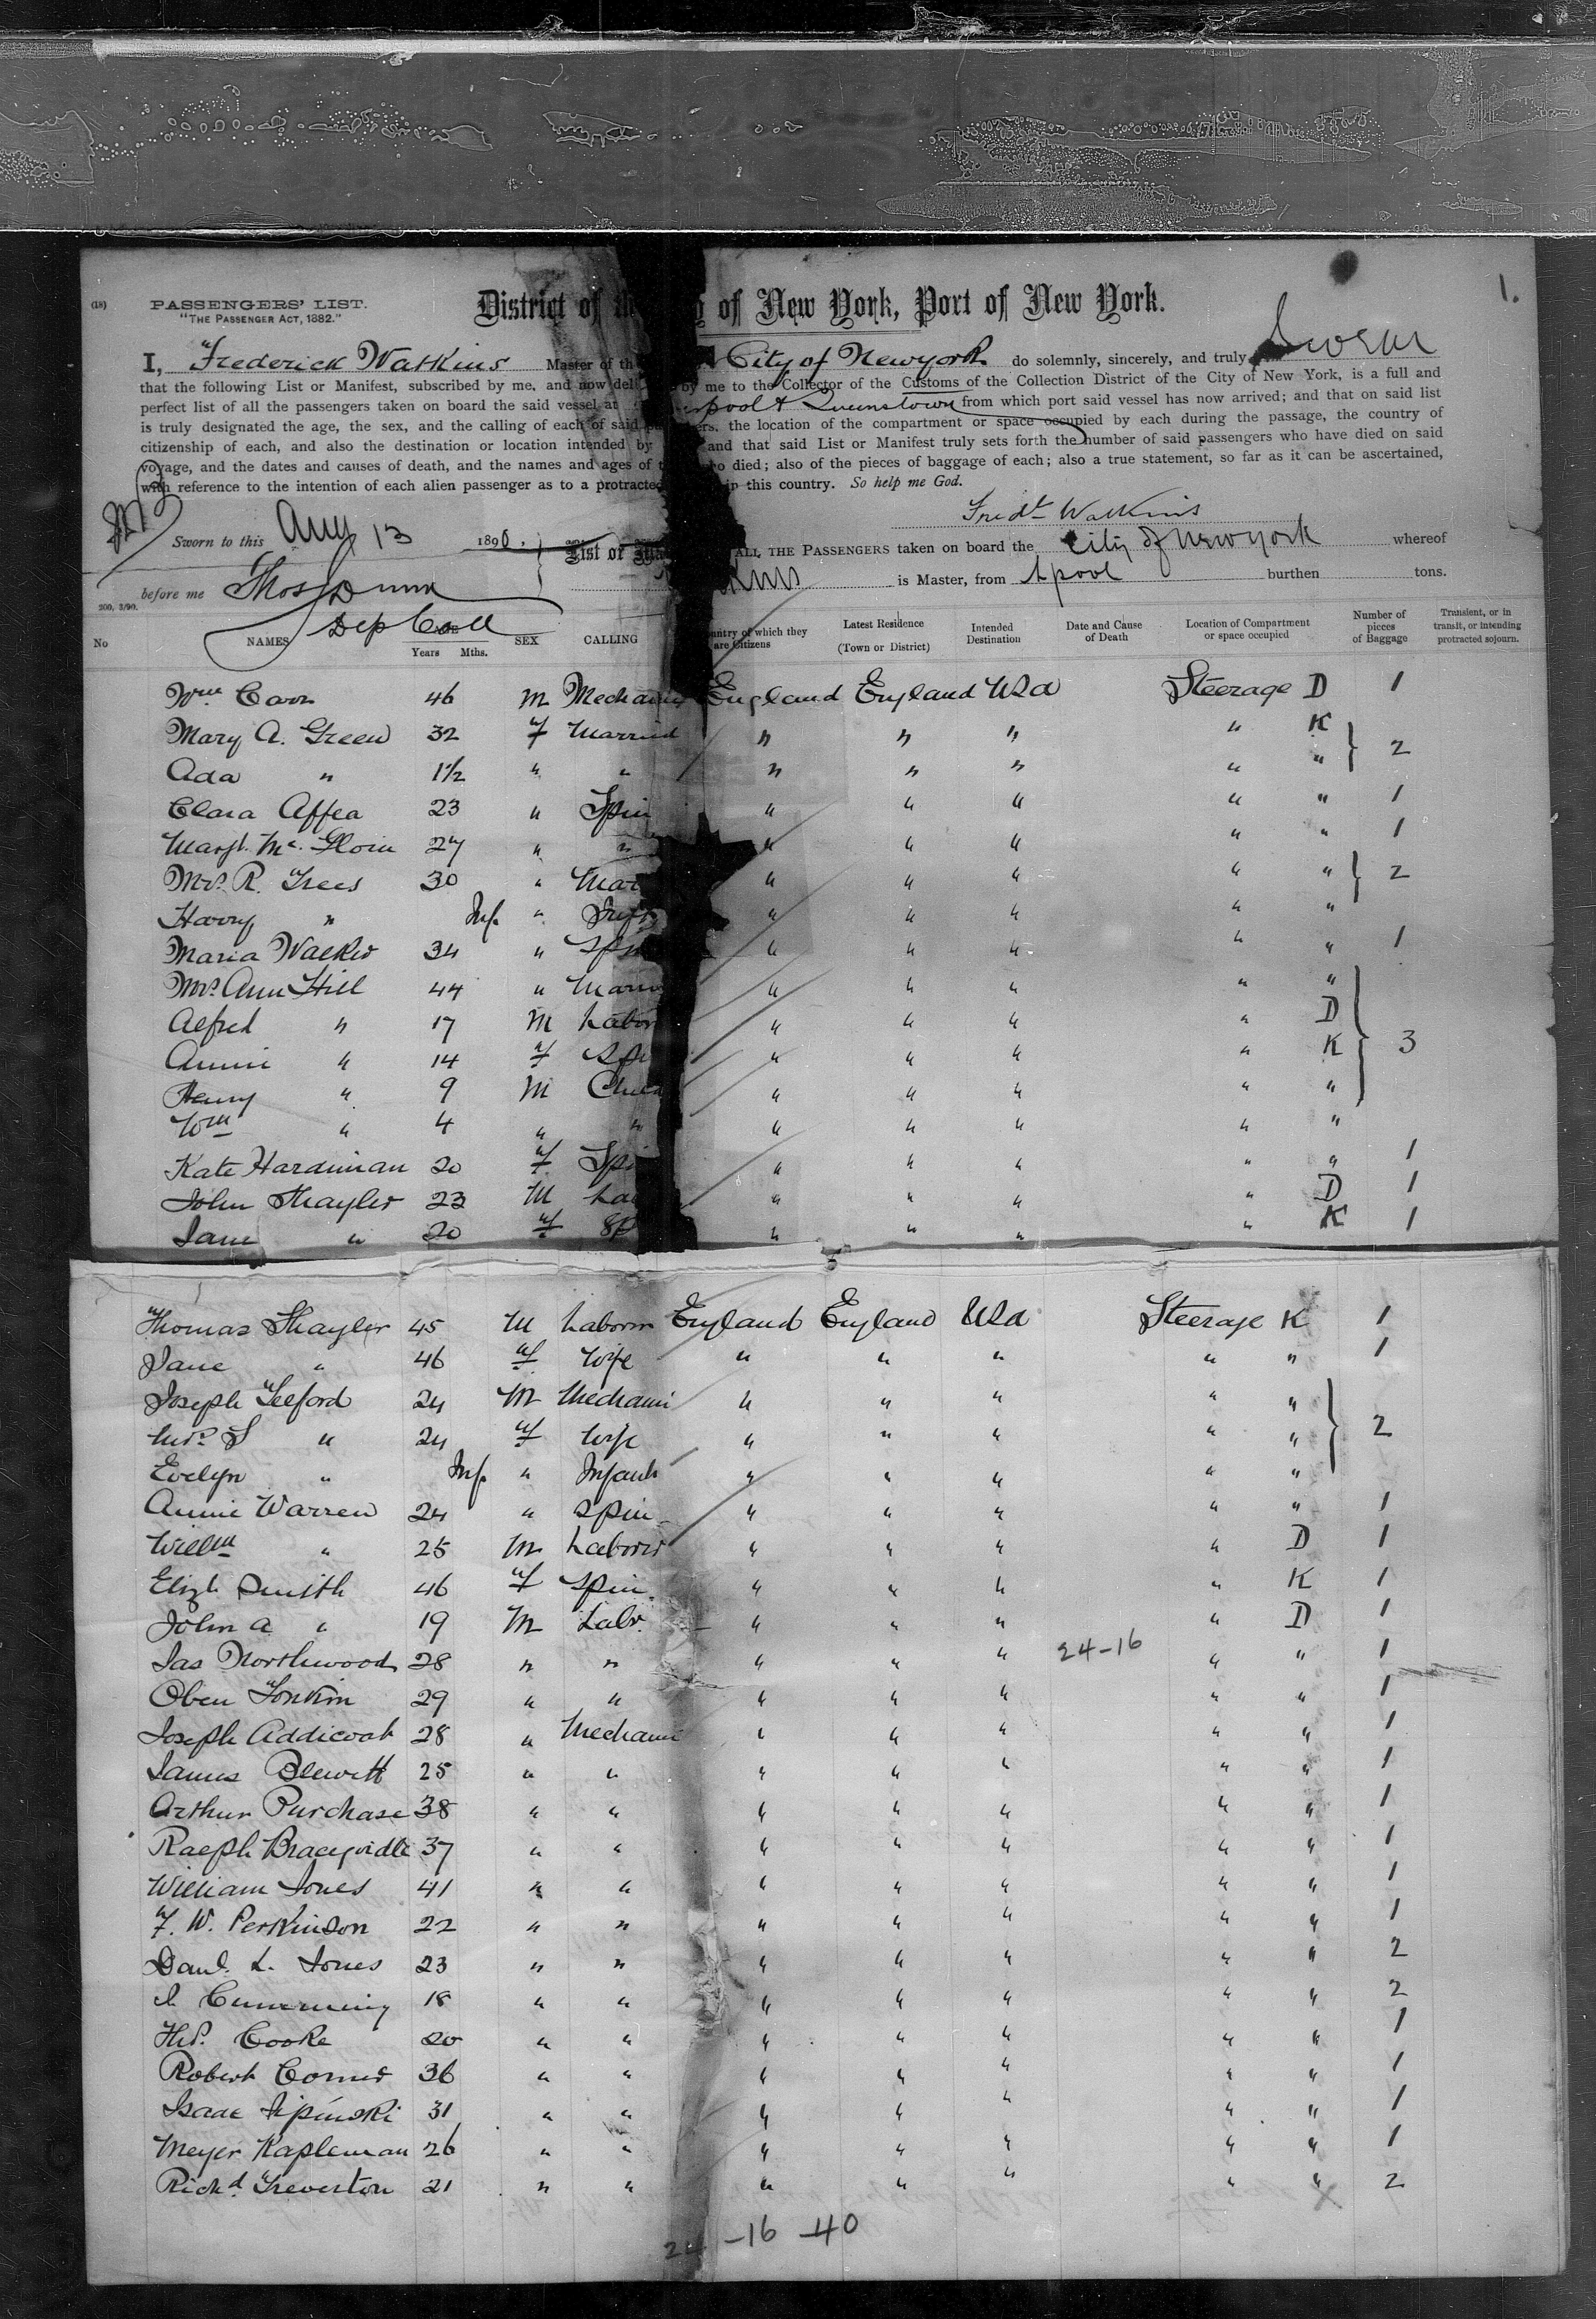 1.
(18) PASSENGERS' LIST.
"THE PASSENGER ACT, 1882."
District of the of New York, Port of New York.
I, Frederick Watkins Master of the City of New york do solemnly, sincerely, and truly Swear
that the following List or Manifest, subscribed by me, and now by me to the Collector of the Customs of the Collection District of the City of New York, is a full and
perfect list of all the passengers taken on board the said vessel at pool & Queenstown from which port said vessel has now arrived; and that on said list
is truly designated the age, the sex, and the calling of each of said the location of the compartment or space occupied by each during the passage, the country of
citizenship of each, and also the destination or location intended by and that said List or Manifest truly sets forth the number of said passengers who have died on said
voyage, and the dates and causes of death, and the names and ages of died; also of the pieces of baggage of each; also a true statement, so far as it can be ascertained,
with reference to the intention of each alien passenger as to a protracted in this country. So help me God.
Fredk Watkins
Sworn to this Aug 13 1890,
List or ALL THE PASSENGERS taken on board the City of New york whereof
before me Thos Dunn is Master, from Lpool burthen tons.
200, 3/90.
Dep Coll
No NAMES Years Mths. SEX CALLING Country of which they are Citizens Latest Residence (Town or District) Intended Destination Date and Cause of Death Location of Compartment or space occupied Number of pieces of Baggage Transient, or in transit, or intending protracted sojourn.
Wm 46 M Mechanic England England USA Steerage D 1
Mary A. Green 32 f Married " " " " K } 2
Ada " 1½ " " " " " " "
Clara Affea 23 " Spin " " " " " 1
Margt. Mc. Gloin 27 " " " " " " " 1
Mrs. R. Trees 30 " Mar " " " " " } 2
Harry " Inf " Inf " " " " "
Maria Walker 34 " Spin " " " " " 1
Mrs. Ann Hill 44 " Marr " " " " " } 3
Alfred " 17 M Labor " " " " D
Annie " 14 f Sp " " " " K
Henry " 9 M Child " " " " "
Wm " 4 " " " " " " "
Kate Hardiman 20 f Spi " " " " " 1
John Shayler 23 M La " " " " D 1
Jane " 20 f Sp " " " " K 1
Thomas Shayler 45 M Laborer England England USA Steerage K 1
Jane " 46 f Wife " " " " " 1
Joseph Telford 24 M Mechani " " " " " } 2
Mrs. S " 24 f Wife " " " " "
Evelyn " Inf " Infant " " " " "
Annie Warren 24 " Spin " " " " " 1
Willm " 25 M Laborer " " " " D 1
Elizh Smith 46 f Spin " " " " K 1
John A " 19 M Labr. " " " " D 1
Jas Northwood 28 " " " " " 24-16 " " 1
Oben Tonkin 29 " " " " " " " 1
Joseph Addicoat 28 " Mechani " " " " " 1
James Blewett 25 " " " " " " " 1
Arthur Purchase 38 " " " " " " " 1
Ralph Bracegirdle 37 " " " " " " " 1
William Jones 41 " " " " " " " 1
F. W. Perkinson 22 " " " " " " " 1
Danl. L. Jones 23 " " " " " " " 2
J. Cumming 18 " " " " " " " 2
Cooke 20 " " " " " " " 1
Robert Corner 36 " " " " " " " 1
Isaac Lipinski 31 " " " " " " " 1
Meyer Kapleman 26 " " " " " " " 1
Richd. Treverton 21 " " " " " " " 2
24 -16 -40